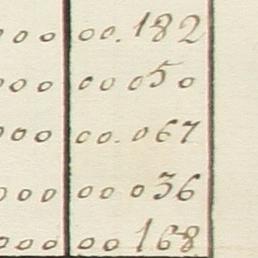 000 00.182
000 00050
000 00.067
000 00036
000 00168